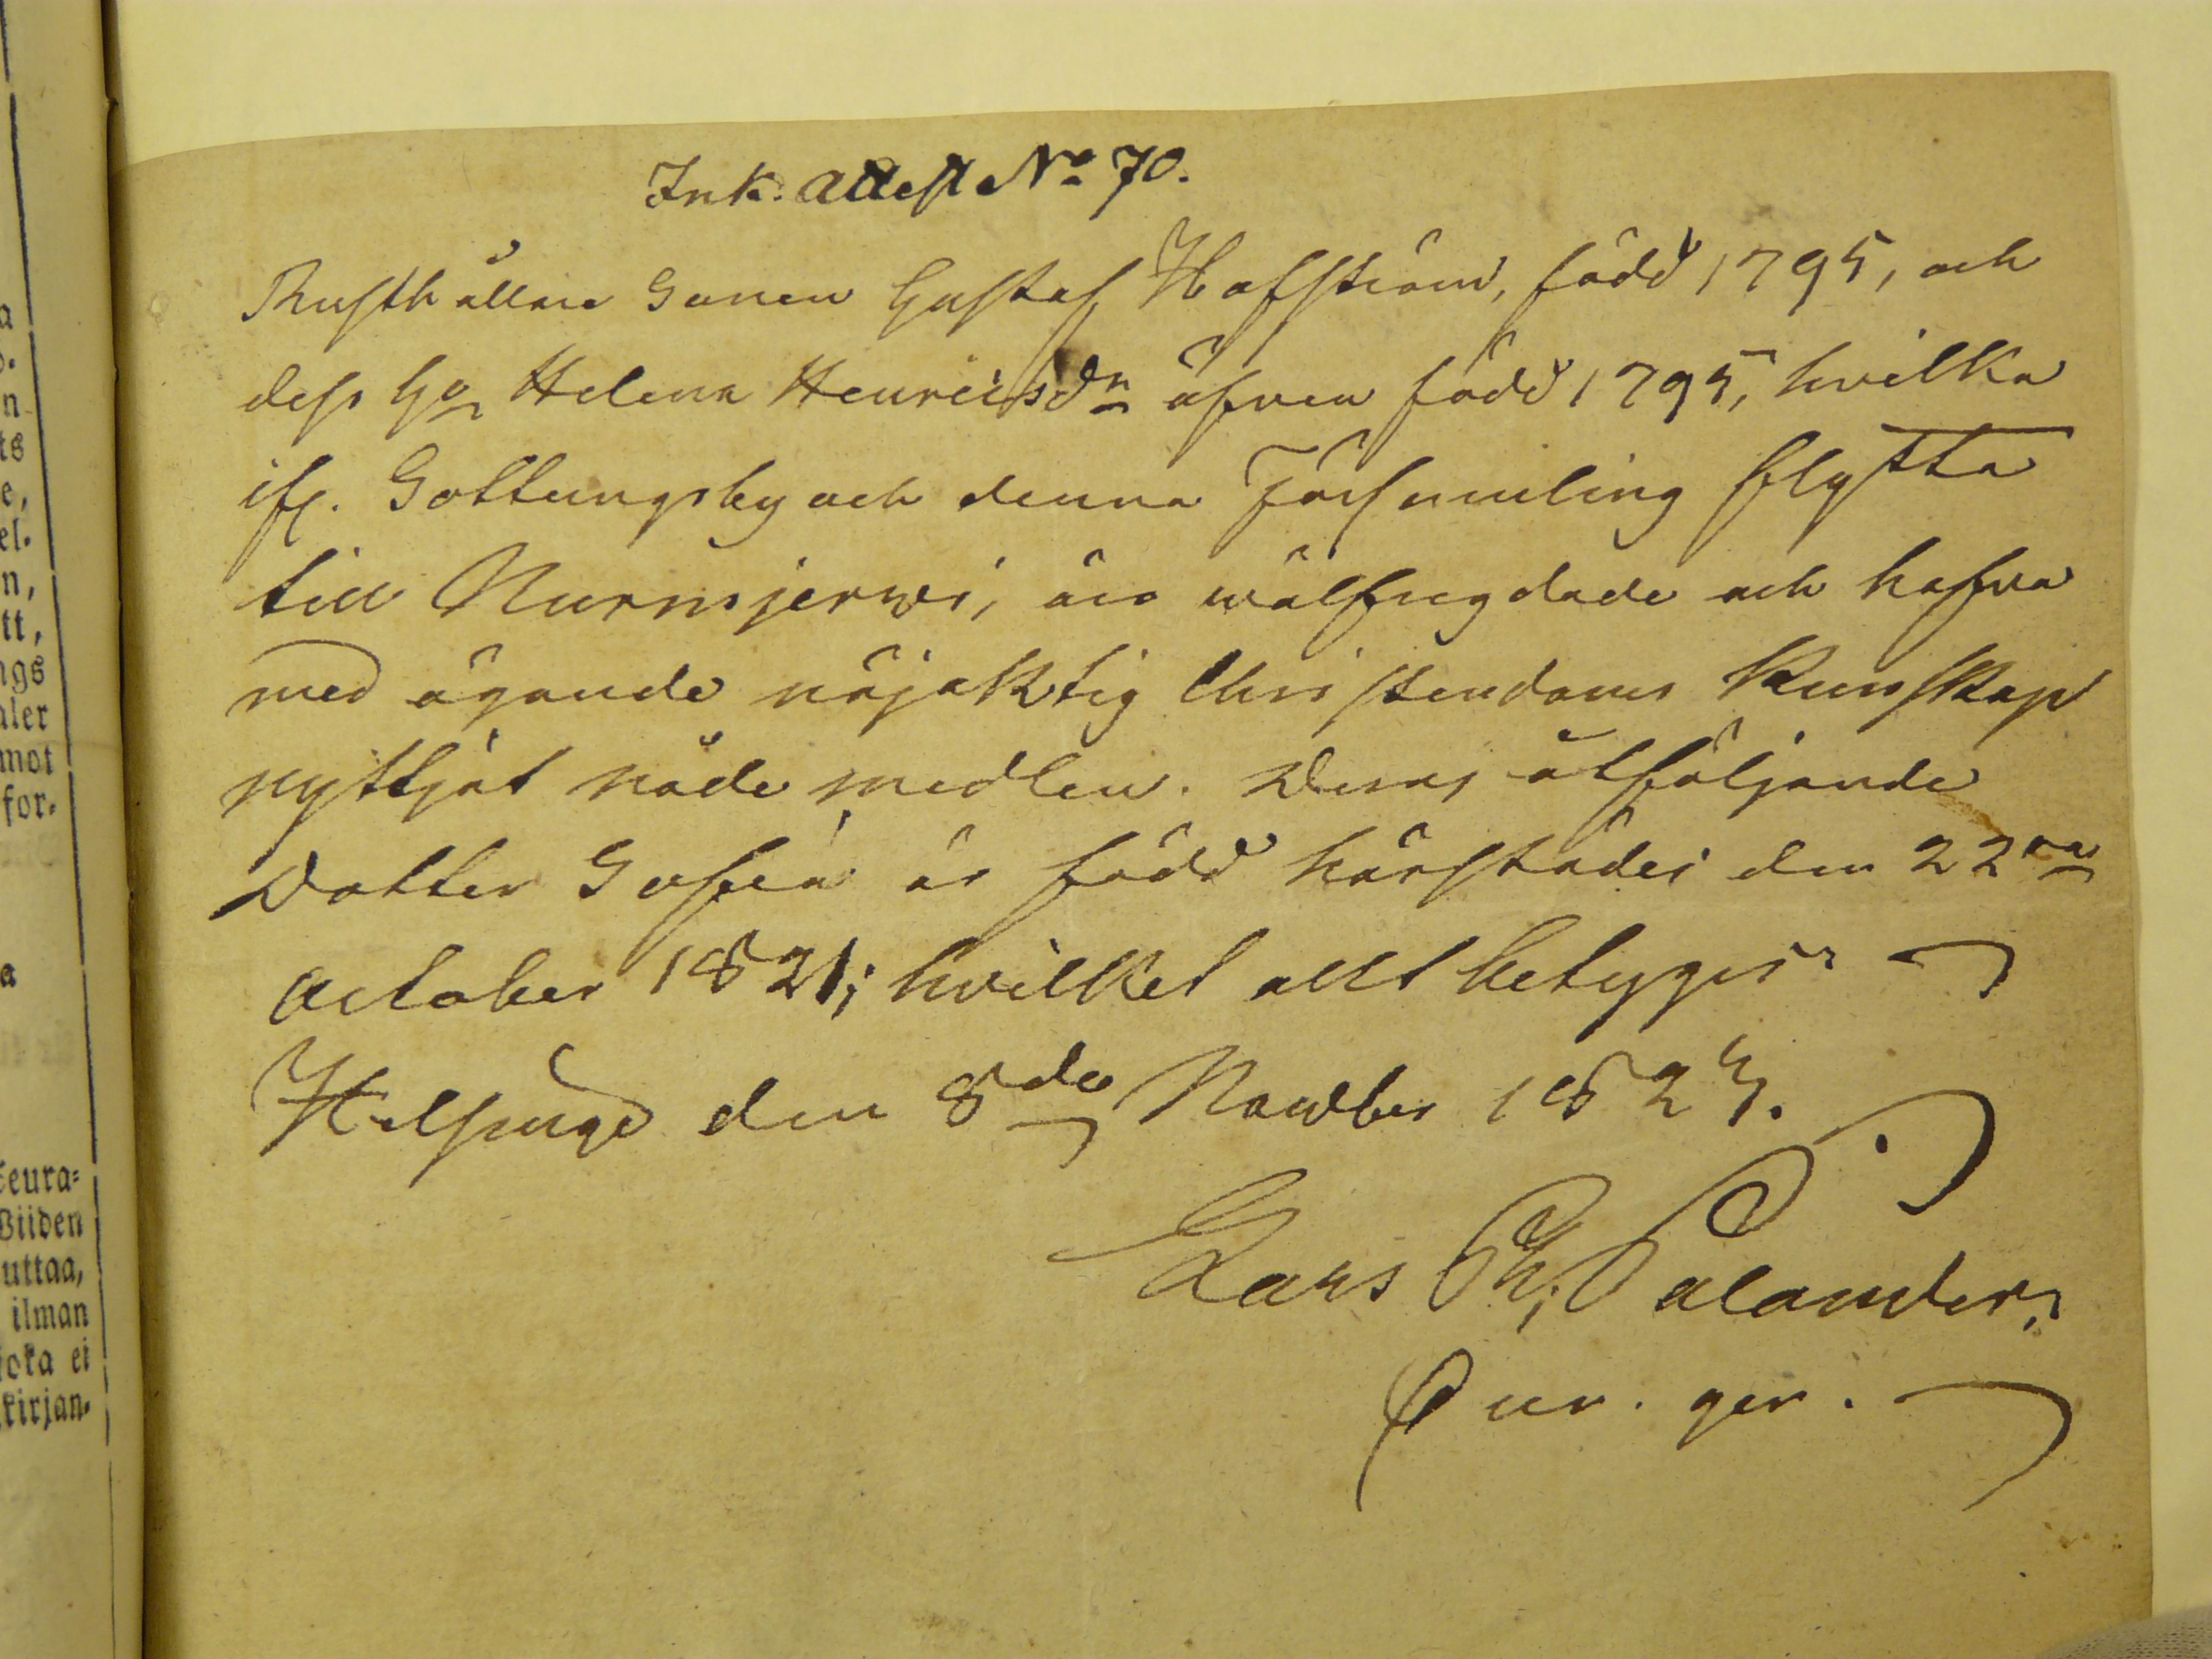 Ink. Attest No 70.
Rusthållare Sonen Gustaf Hofström, född 1795, och
dess Hu Helena Henricsdr äfven född 1795, hvilka
ifr. Gottungsby och denna Församling flytta
till Nurmijerwi, äro wälfregdade och hafva
med ägande nöjaktig Christendoms Kunskap
nyttjat nåde medlen. Deras åtföljande
Dotter Sofia är född härstädes den 22ra
October 1821; hvilket allt betygar
Helsinge den 8de Novber 1825.
Lars Ph. Palander.
Cur. ger.
a
n
ts
e,
el.
n,
tt,
ngs
aler
mot
for-
a
Seura=
Viiden
uttaa,
ilman
joka ei
kirjan-